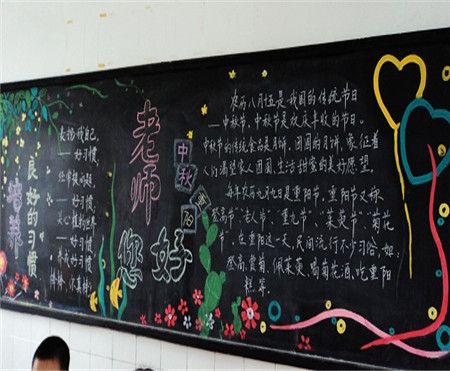 培养
良好的习惯
表扬我自己,
——好习惯
——好习惯
——好习惯
老师
您好
中秋
农历八月十五是我国的传统节日
——中秋节。中秋节是欢庆丰收的节日。
中秋节的传统食品是月饼,团圆的月饼,象征着
人们渴望家人团圆、生活甜蜜的美好愿望。
每年农历九月九日是重阳节,重阳节又称
“登高节”、“老人节”、“重九节”、“茱萸节”、“菊花
节”。在重阳这一天,民间流行不少习俗,如:
登高、赏菊、佩茱萸、喝菊花酒、吃重阳
糕等。